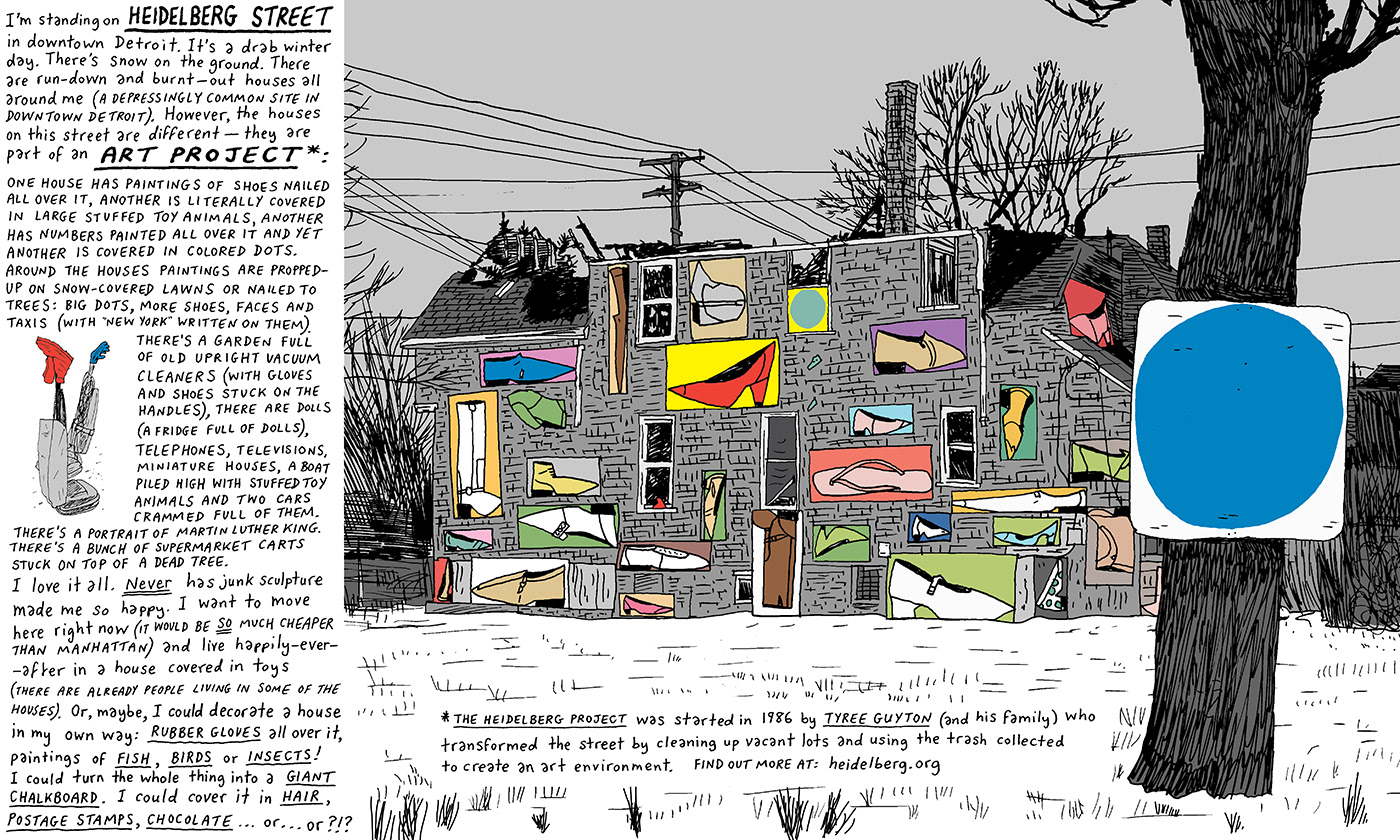 I'm standing on HEIDELBERG STREET
in downtown Detroit. It's a drab winter
day. There's snow on the ground. There
are run-down and burnt-out houses all
around me (A DEPRESSINGLY COMMON SITE IN
DOWNTOWN DETROIT). However, the houses
on this street are different — they are
part of an ART PROJECT*:
ONE HOUSE HAS PAINTINGS OF SHOES NAILED
ALL OVER IT, ANOTHER IS LITERALLY COVERED
IN LARGE STUFFED TOY ANIMALS, ANOTHER
HAS NUMBERS PAINTED ALL OVER IT AND YET
ANOTHER IS COVERED IN COLORED DOTS.
AROUND THE HOUSES PAINTINGS ARE PROPPED-
UP ON SNOW-COVERED LAWNS OR NAILED TO
TREES: BIG DOTS, MORE SHOES, FACES AND
TAXIS (WITH "NEW YORK" WRITTEN ON THEM).
THERE'S A GARDEN FULL
OF OLD UPRIGHT VACUUM
CLEANERS (WITH GLOVES
AND SHOES STUCK ON THE
HANDLES), THERE ARE DOLLS
(A FRIDGE FULL OF DOLLS),
TELEPHONES, TELEVISIONS,
MINIATURE HOUSES, A BOAT
PILED HIGH WITH STUFFED TOY
ANIMALS AND TWO CARS
CRAMMED FULL OF THEM.
THERE'S A PORTRAIT OF MARTIN LUTHER KING.
THERE'S A BUNCH OF SUPERMARKET CARTS
STUCK ON TOP OF A DEAD TREE.
I love it all. Never has junk sculpture
made me so happy. I want to move
here right now (IT WOULD BE SO MUCH CHEAPER
THAN MANHATTAN) and live happily-ever-
-after in a house covered in toys
(THERE ARE ALREADY PEOPLE LIVING IN SOME OF THE
HOUSES). Or, maybe, I could decorate a house
in my own way: RUBBER GLOVES all over it,
paintings of FISH, BIRDS or INSECTS!
I could turn the whole thing into a GIANT
CHALKBOARD. I could cover it in HAIR,
POSTAGE STAMPS, CHOCOLATE ... or... or ?!?
*THE HEIDELBERG PROJECT was started in 1986 by TYREE GUYTON (and his family) who
transformed the street by cleaning up vacant lots and using the trash collected
to create an art environment. FIND OUT MORE AT: heidelberg.org